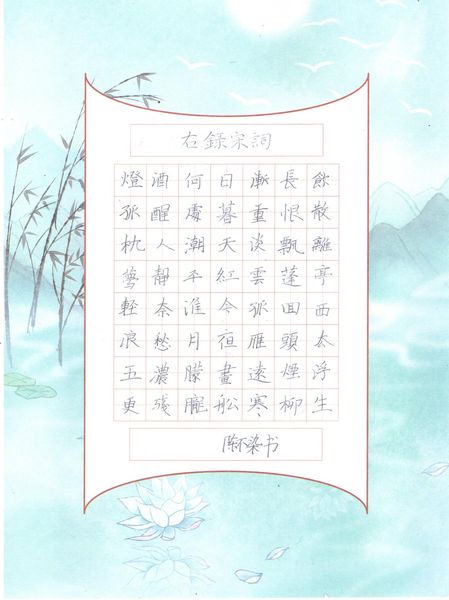 右錄宋詞
飲散離亭西去浮生
長恨飄蓬回頭煙柳
漸重淡雲孤雁遠寒
日暮天紅今夜畫船
何處潮平淮月朦朧
酒醒人靜奈愁濃殘
燈孤枕夢輕浪五更
陈染书